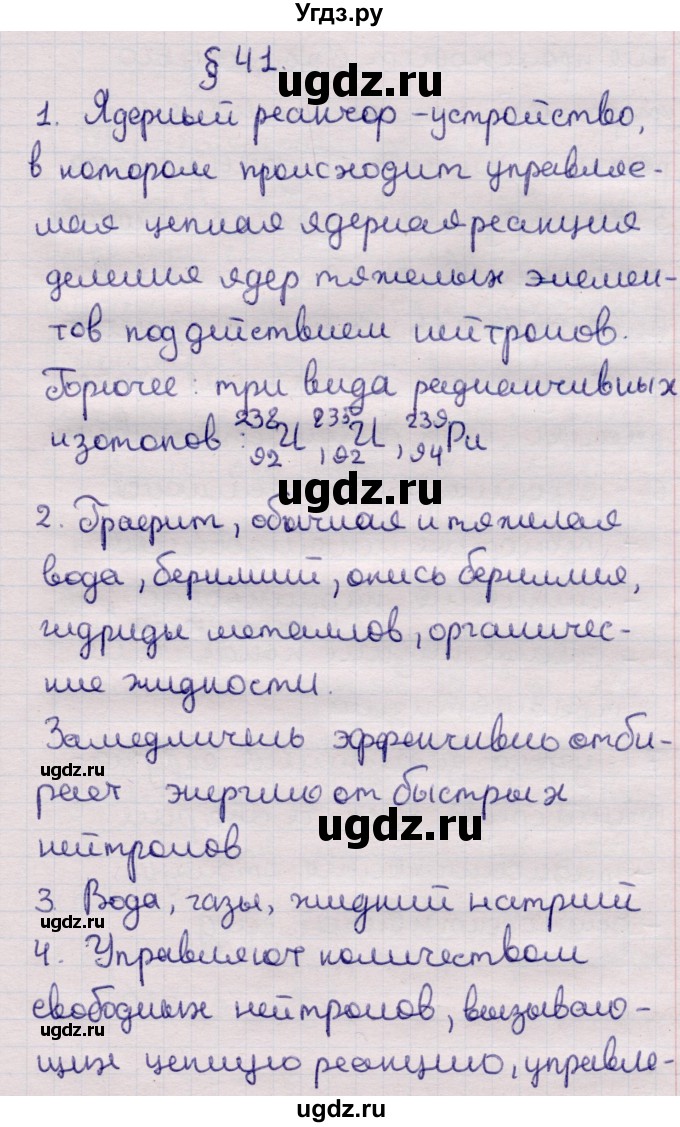 Угдз.ру
§ 41.
ugdz.ru
1. Ядерный реактор - устройство,
в котором происходит управляе-
мая цепная ядерная реакция
деления ядер тяжелых элемен-
тов под действием нейтронов.
Горючее: три вида радиактивных
изотопов: ²³⁸₉₂U, ²³⁵₉₂U, ²³⁹₉₄Pu
ugdz.ru
2. Графит, обычная и тяжелая
вода, бериллий, окись бериллия,
гидриды металлов, органичес-
кие жидкости.
Замедлитель эффективно отби-
ugdz.ru
рает энергию от быстрых
ugdz.ru
нейтронов
3. Вода, газы, жидкий натрий
ugdz.ru
4. Управляют количеством
свободных нейтронов, вызываю-
ugdz.ru
щих цепную реакцию, управле-
ugdz.ru